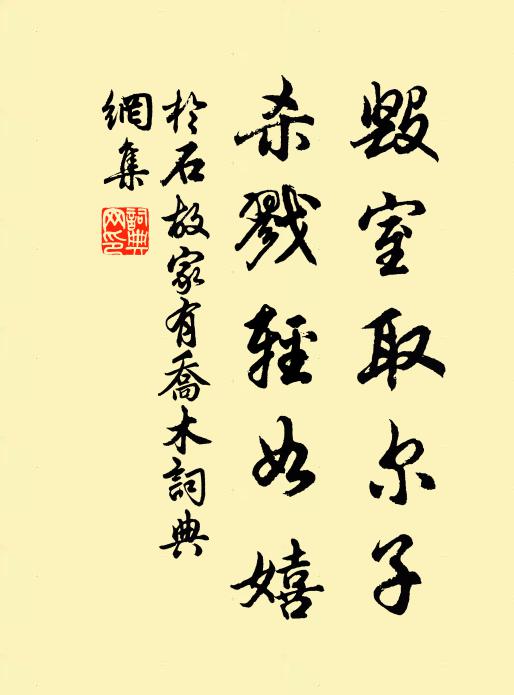 毁室取尔子
杀戮轻如嬉
于石故家有喬木詞典
網集
詞典
网印